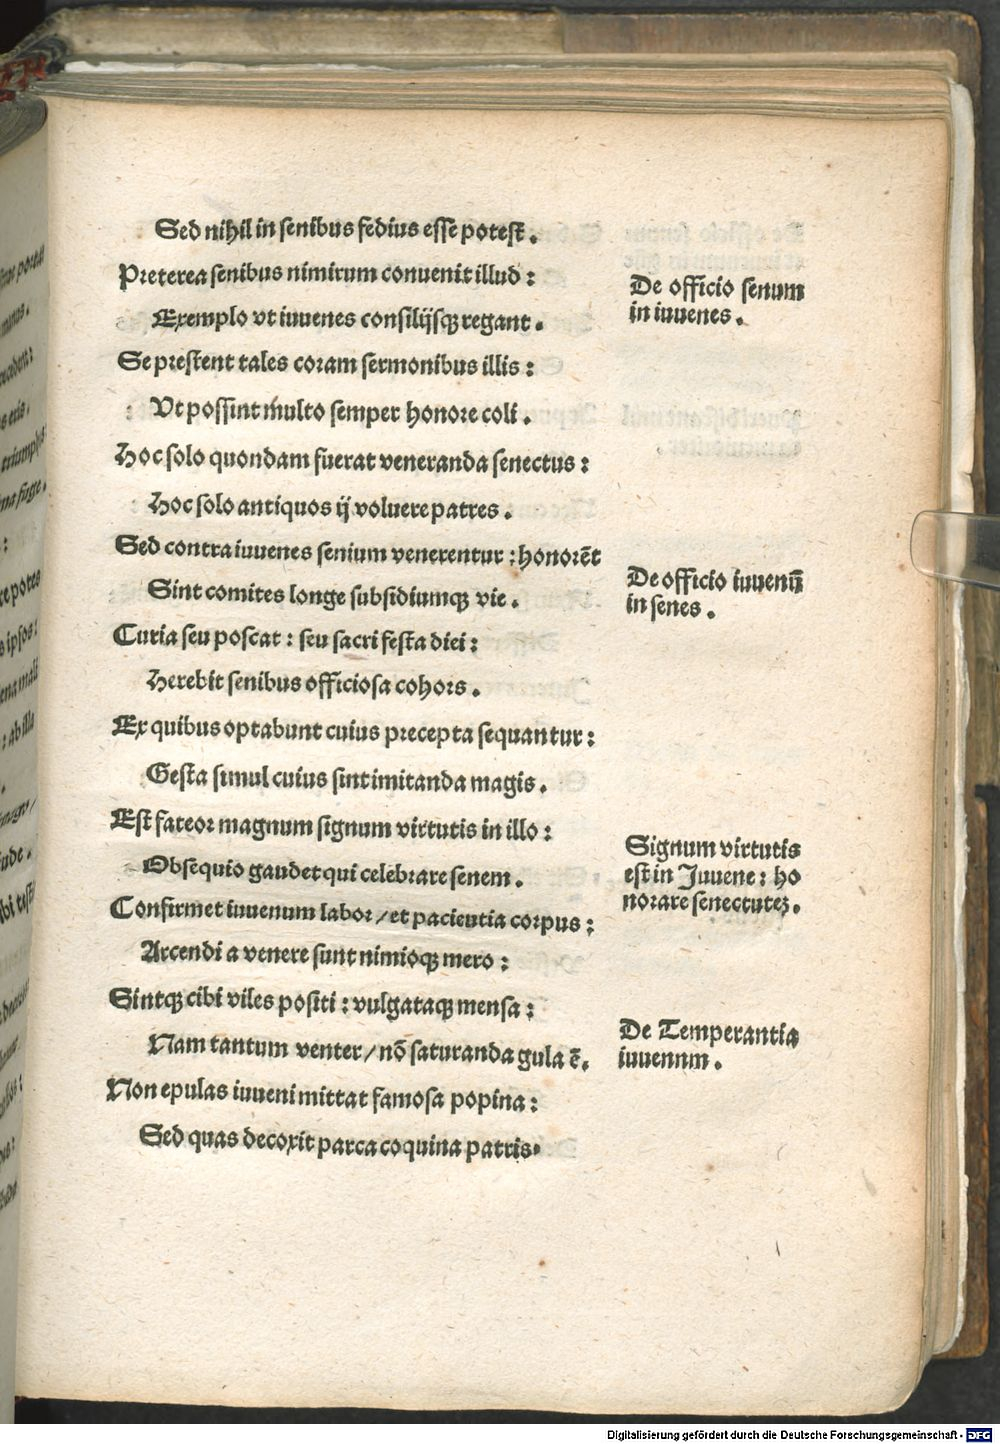 Sed nihil in senibus fedius esse potest.
Preterea senibus nimirum conuenit illud:
Exemplo vt iuuenes consilijsqꝫ regant.
De officio senum
in iuuenes.
Se prestent tales coram sermonibus illis:
Vt possint multo semper honore coli.
Hoc solo quondam fuerat veneranda senectus:
Hoc solo antiquos ij voluere patres.
Sed contra iuuenes senium venerentur: honorēt
Sint comites longe subsidiumqꝫ vie.
De officio iuuenū
in senes.
Curia seu poscat: seu sacri festa diei:
Herebit senibus officiosa cohors.
Ex quibus optabunt cuius precepta sequantur:
Gesta simul cuius sint imitanda magis.
Est fateor magnum signum virtutis in illo:
Obsequio gaudet qui celebrare senem.
Signum virtutis
est in Juuene: ho
norare senectuteꝫ.
Confirmet iuuenum labor/et pacientia corpus:
Arcendi a venere sunt nimioqꝫ mero:
Sintqꝫ cibi viles positi: vulgataqꝫ mensa:
Nam tantum venter/nō saturanda gula ē.
De Temperantia
iuuennm.
Non epulas iuueni mittat famosa popina:
Sed quas decoxit parca coquina patris.
Digitalisierung gefördert durch die Deutsche Forschungsgemeinschaft - DFG